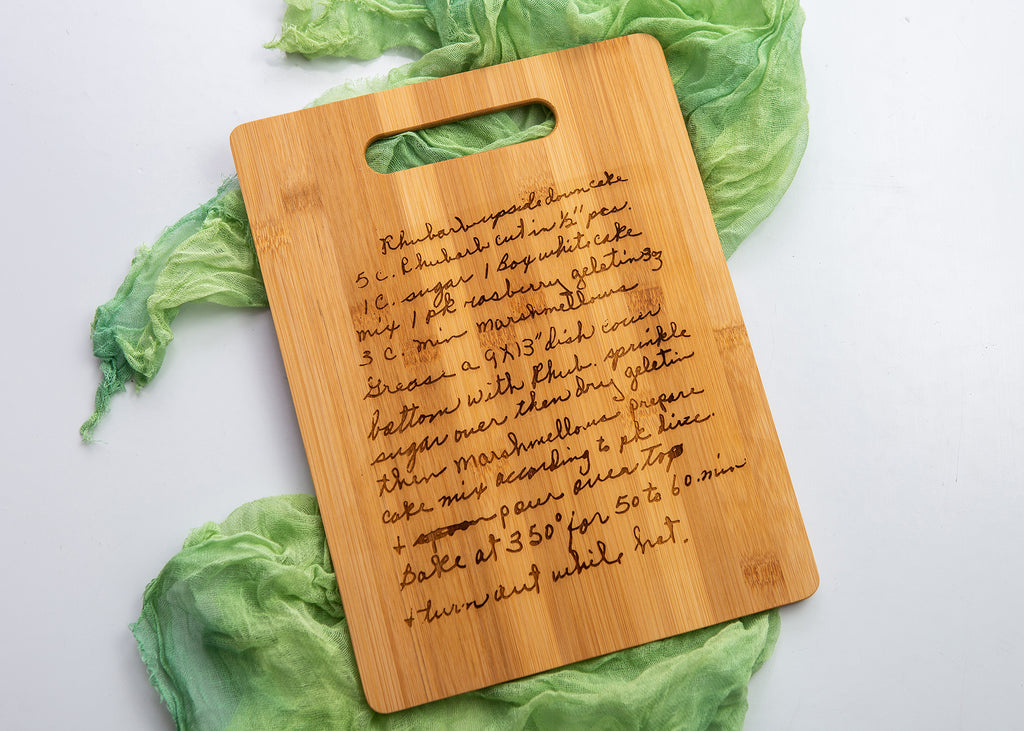 Rhubarb upside down cake
5 c. Rhubarb cut in ½" pcs.
1 c. sugar 1 Box white cake
mix 1 pk rasberry geletin 3oz
3 c. min marshmellows
Grease a 9X13" dish cover
bottom with Rhub. sprinkle
sugar over then dry geletin
then marshmellows prepare
cake mix according to pk direc.
+ pour over top
Bake at 350° for 50 to 60 min
+ turn out while hot.